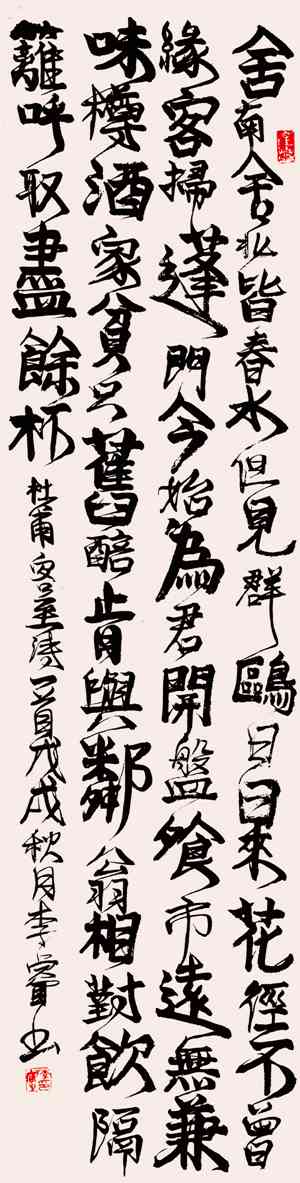 舍南舍北皆春水但見群鷗日日來花徑不曾
緣客掃蓬門今始為君開盤飧市遠無兼
味樽酒家貧只舊醅肯與鄰翁相對飲隔
籬呼取盡餘杯 杜甫客至詩一首戊戌秋月李书